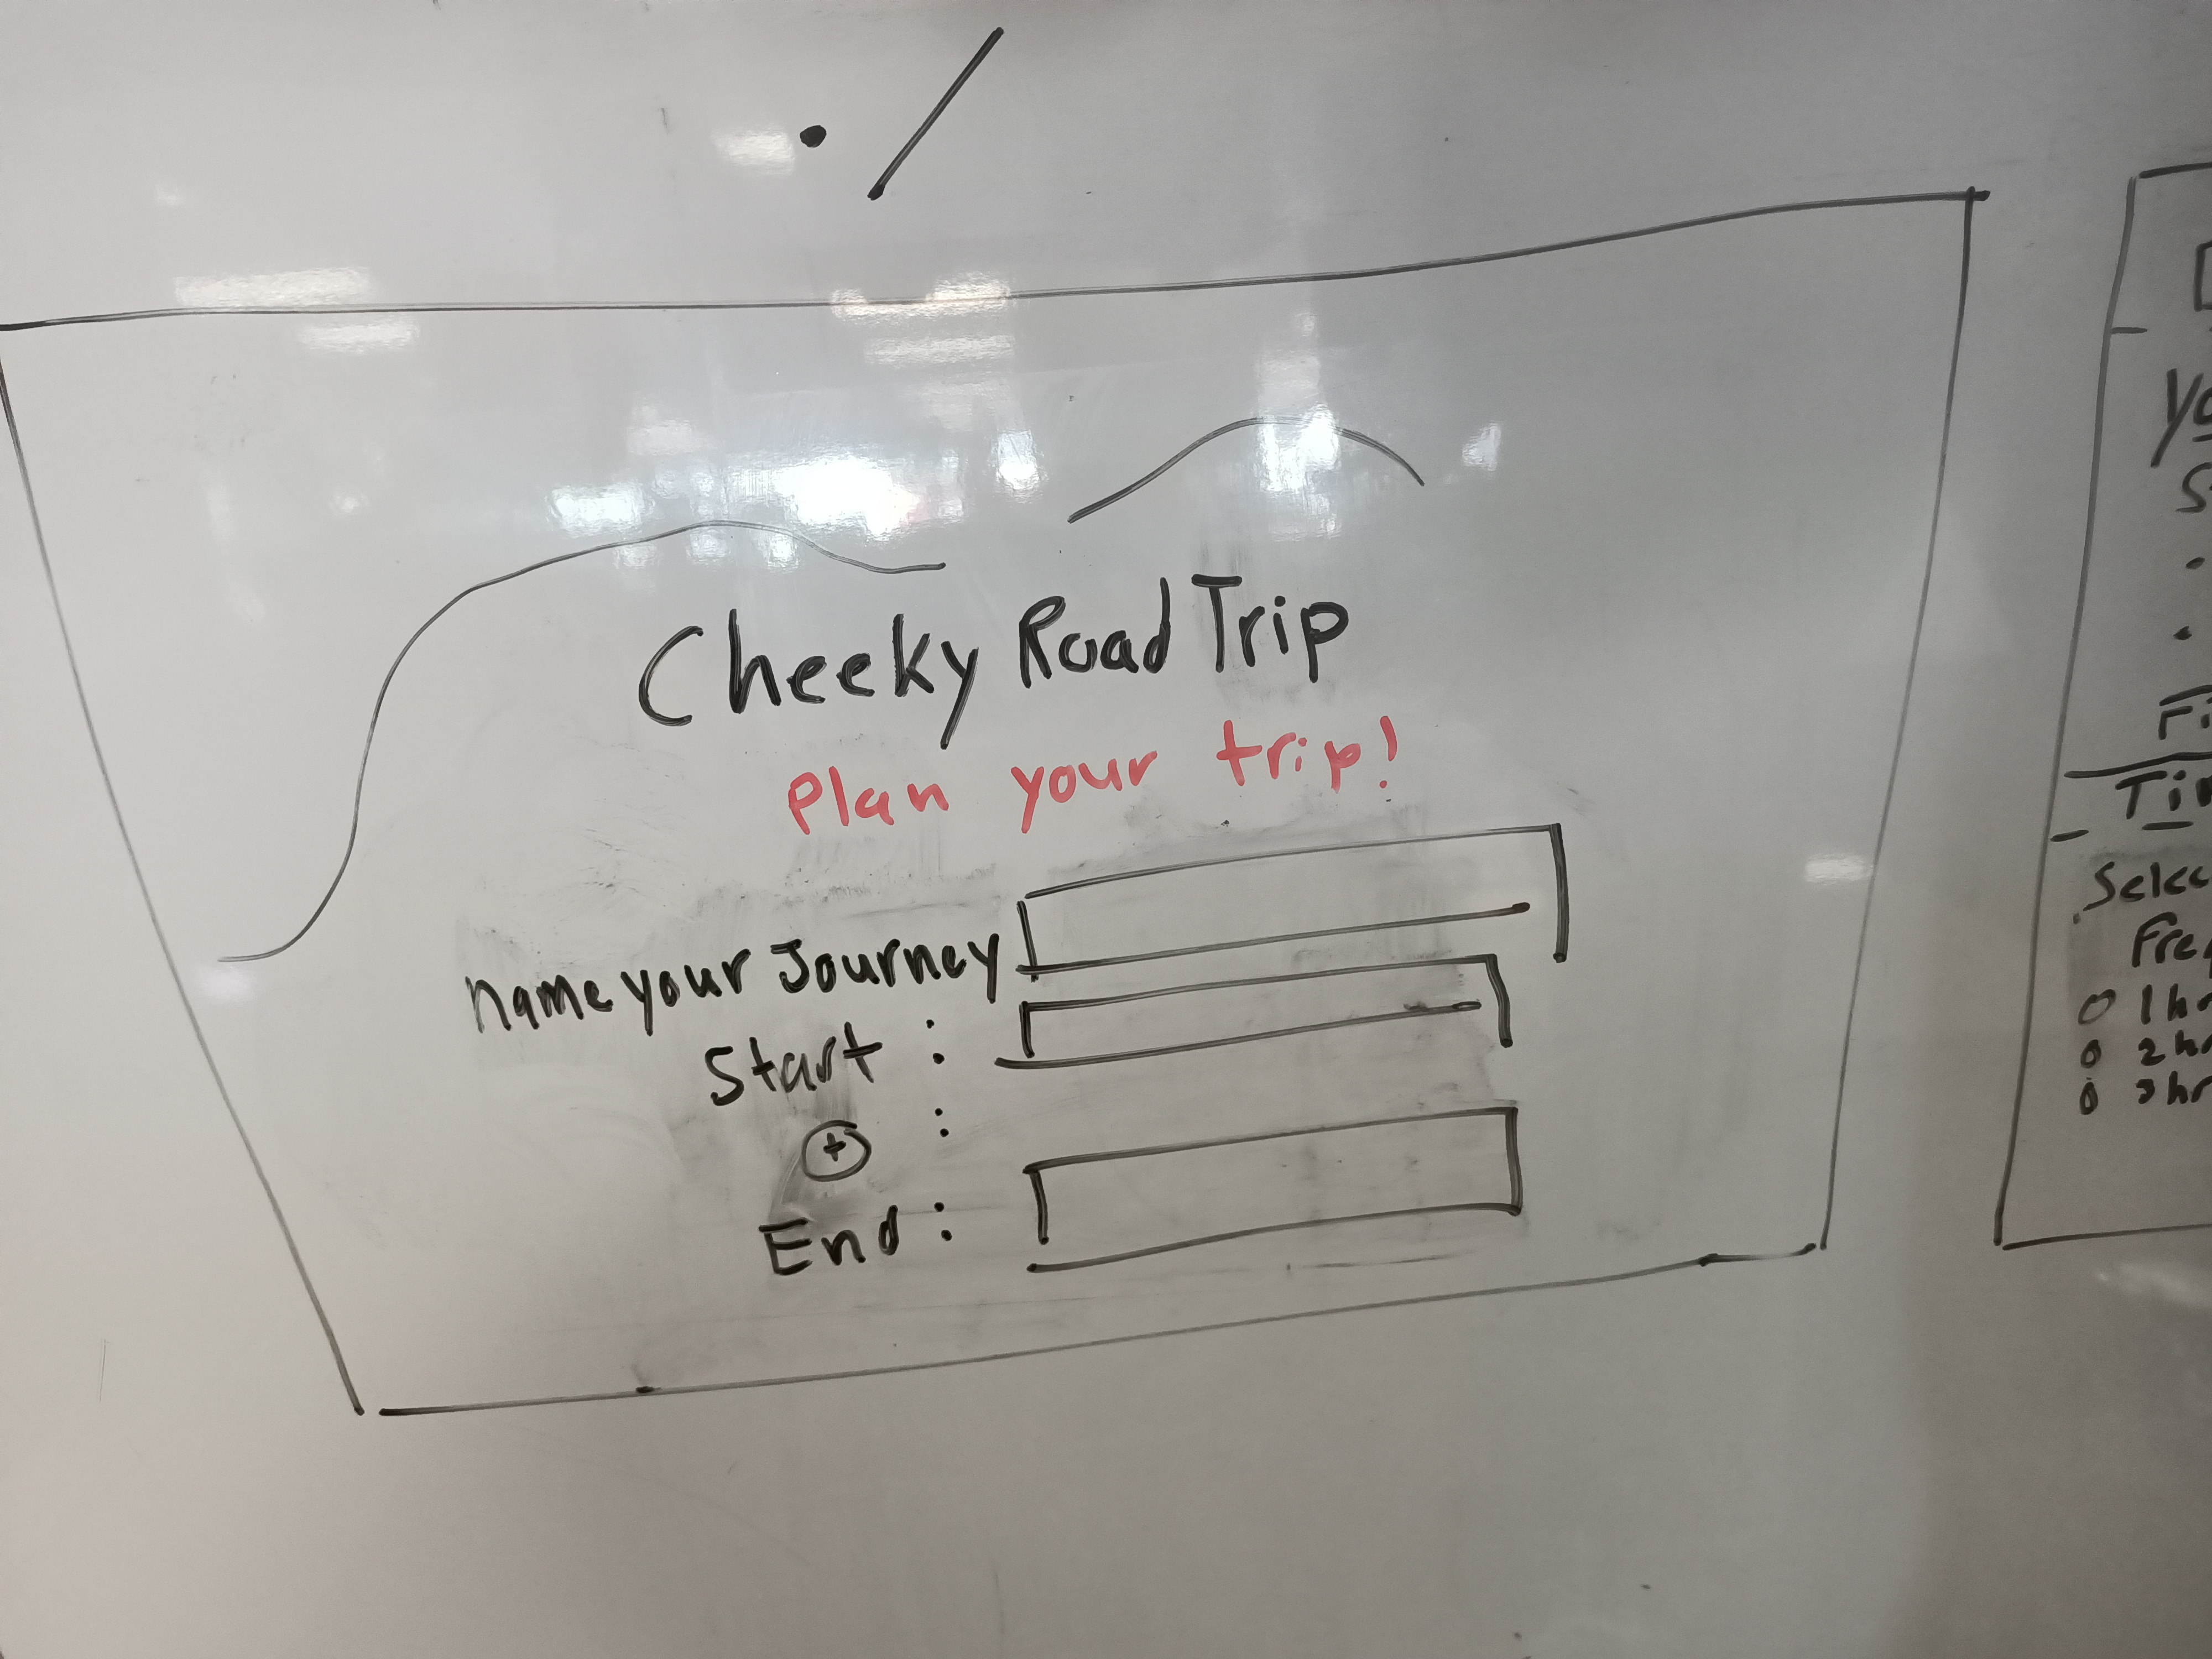 ./
Cheeky Road Trip
Plan your trip!
name your Journey
Start :
+ :
End :
S
Tir
Selec
Freq
O 1hr
O 2hr
O 3hr